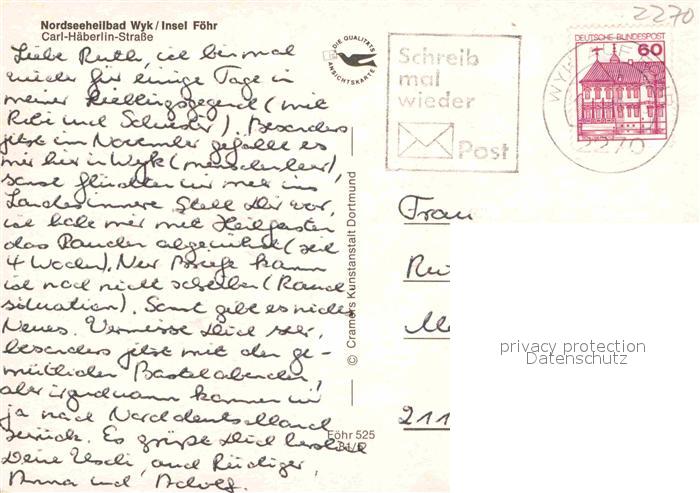 2270
Nordseeheilbad Wyk/Insel Föhr
Carl-Häberlin-Straße
DIE QUALITÄTS
ANSICHTSKARTE
Schreib
mal
wieder
Post
DEUTSCHE BUNDESPOST
60
WYK AUF
2270
Liebe Ruth, ich bin mal
wieder für einige Tage in
meiner Lieblingsgegend (mit
und Schwester). Besonders
jetzt im November gefällt es
mir hier in Wyk (menschenleer),
sonst flüchten wir mehr ins
Landesinnere. Stell Dir vor,
ich habe mir mit
das Rauchen abgewöhnt (seit
4 Wochen). Nur Briefe kann
ich noch nicht schreiben (Rauch
situation). Sonst gibt es nichts
Neues. Vermisse Dich sehr,
besonders jetzt mit den ge-
mütlichen Bastelabenden,
aber irgendwann kommen wir
ja nach Norddeutschland
zurück. Es grüßt Dich herzlich
Deine Uschi, auch Rüdiger,
Anna und
© Cramers Kunstanstalt Dortmund
Föhr 525
Frau
211
privacy protection
Datenschutz